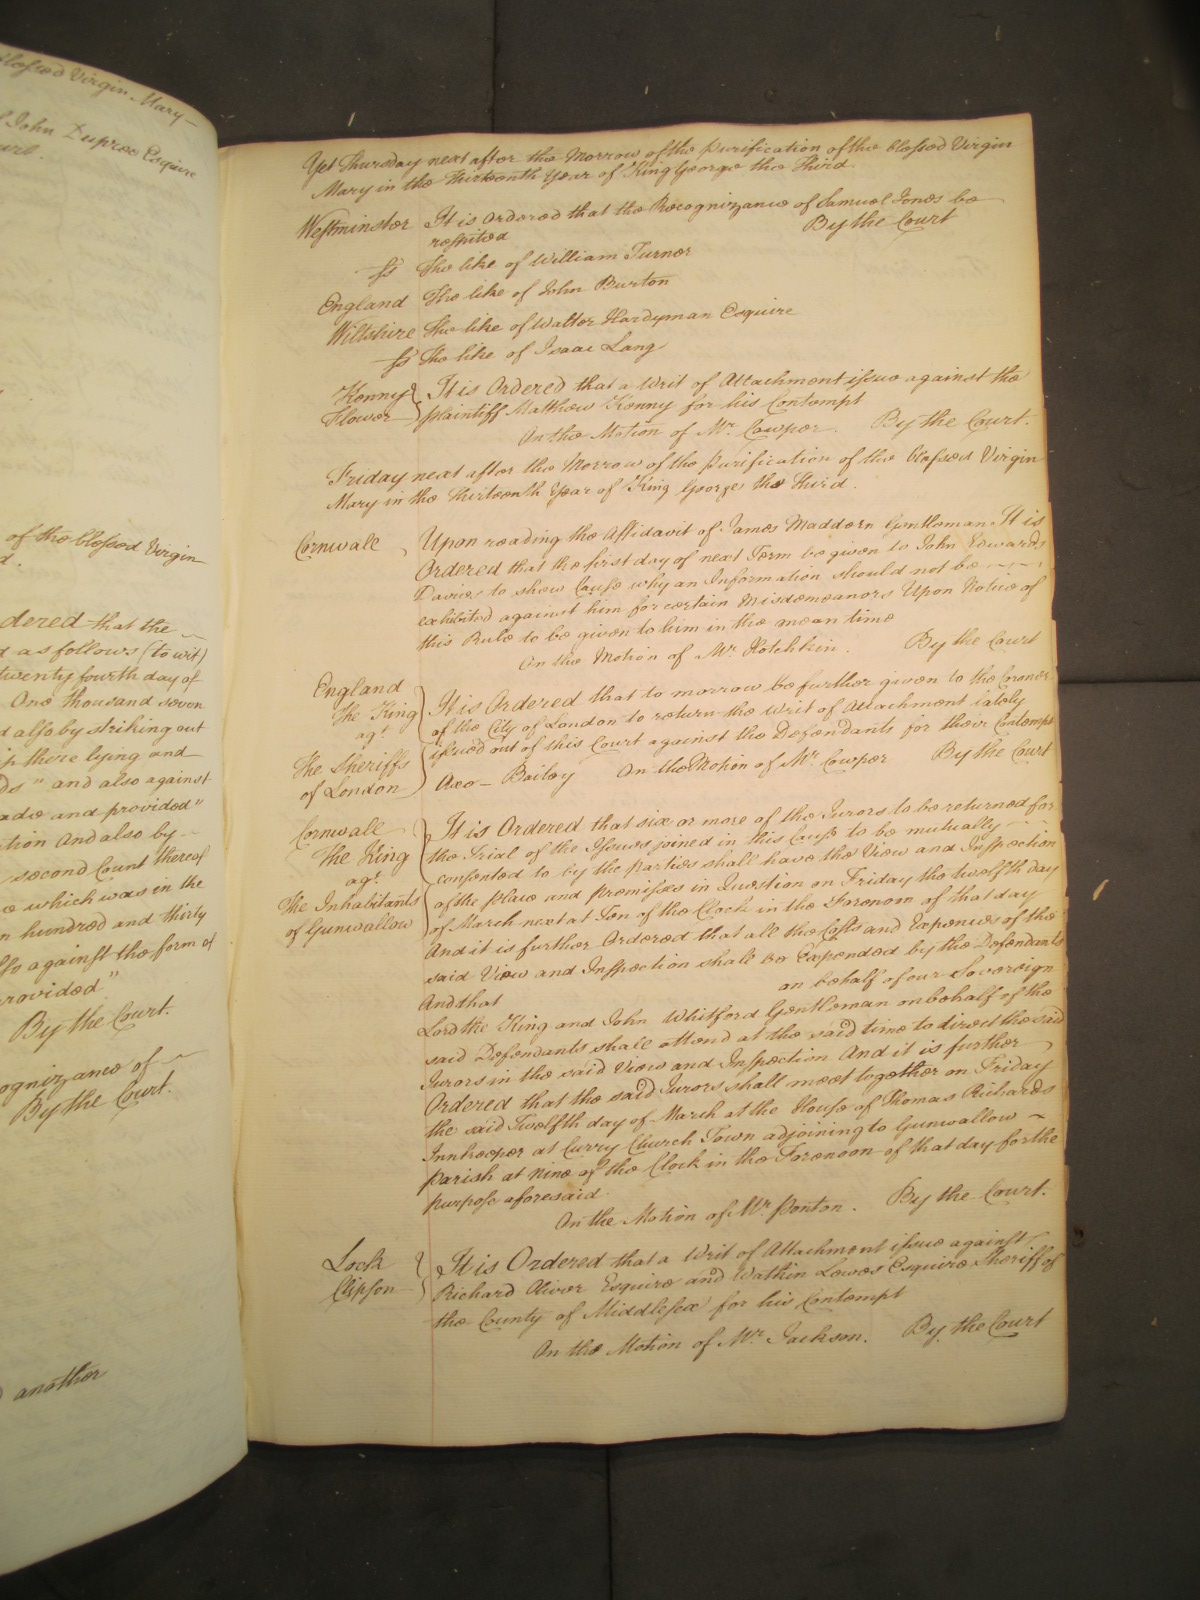 blessed Virgin Mary
John Dupree Esquire
of the blessed Virgin
dered that the
d as follows (to wit)
twenty fourth day of
One thousand seven
d also by striking out
there lying and
and also against
ade and provided"
tion And also by
second Count thereof
which was in the
n hundred and thirty
against the form of
rovided"
By the Court.
ognizance of
By the Court.
another
Yet Thursday next after the Morrow of the Purification of the blessed Virgin
Mary in the thirteenth Year of King George the Third
Westminster It is Ordered that the Recognizance of Samuel Jones be
respited By the Court
ss The like of William Turner
England The like of John Burton
Wiltshire The like of Walter Hardyman Esquire
ss The like of Isaac Lang
Kenny It is Ordered that a Writ of Attachment issue against the
Flower plaintiff Matthew Kenny for his Contempt
On the Motion of Mr. Cowper. By the Court.
Friday next after the Morrow of the Purification of the blessed Virgin
Mary in the thirteenth Year of King George the Third.
Cornwall Upon reading the Affidavit of James Maddern Gentleman It is
Ordered that the first day of next Term be given to John Edwards
Davies to shew Cause why an Information should not be
exhibited against him for certain Misdemeanors Upon Notice of
this Rule to be given to him in the mean time
On the Motion of Mr. Hotchkin. By the Court
England
The King
agt.
The Sheriffs
of London
It is Ordered that to morrow be further given to the Coroner
of the City of London to return the Writ of Attachment lately
issued out of this Court against the Defendants for their Contempt
Axo - Bailey On the Motion of Mr. Cowper By the Court
Cornwall
The King
agt.
The Inhabitants
of Gunwallow
It is Ordered that six or more of the Jurors to be returned for
the Trial of the Issues joined in this Cause to be mutually
consented to by the parties shall have the View and Inspection
of the place and premisses in Question on Friday the twelfth day
of March next at Ten of the Clock in the Forenoon of that day
And it is further Ordered that all the Costs and Expences of the
said View and Inspection shall be Expended by the Defendants
And that on behalf of our Sovereign
Lord the King and John Whitford Gentleman on behalf of the
said Defendants shall attend at the said time to direct the said
Jurors in the said View and Inspection And it is further
Ordered that the said Jurors shall meet together on Friday
the said Twelfth day of March at the House of Thomas Richards
Innkeeper at Curry Church Town adjoining to Gunwallow
parish at Nine of the Clock in the Forenoon of that day for the
purpose aforesaid
On the Motion of Mr. Penton. By the Court.
Lock It is Ordered that a Writ of Attachment issue against
Clipson Richard Oliver Esquire and Watkin Lewes Esquire Sheriff of
the County of Middlesex for his Contempt
On the Motion of Mr. Jackson. By the Court